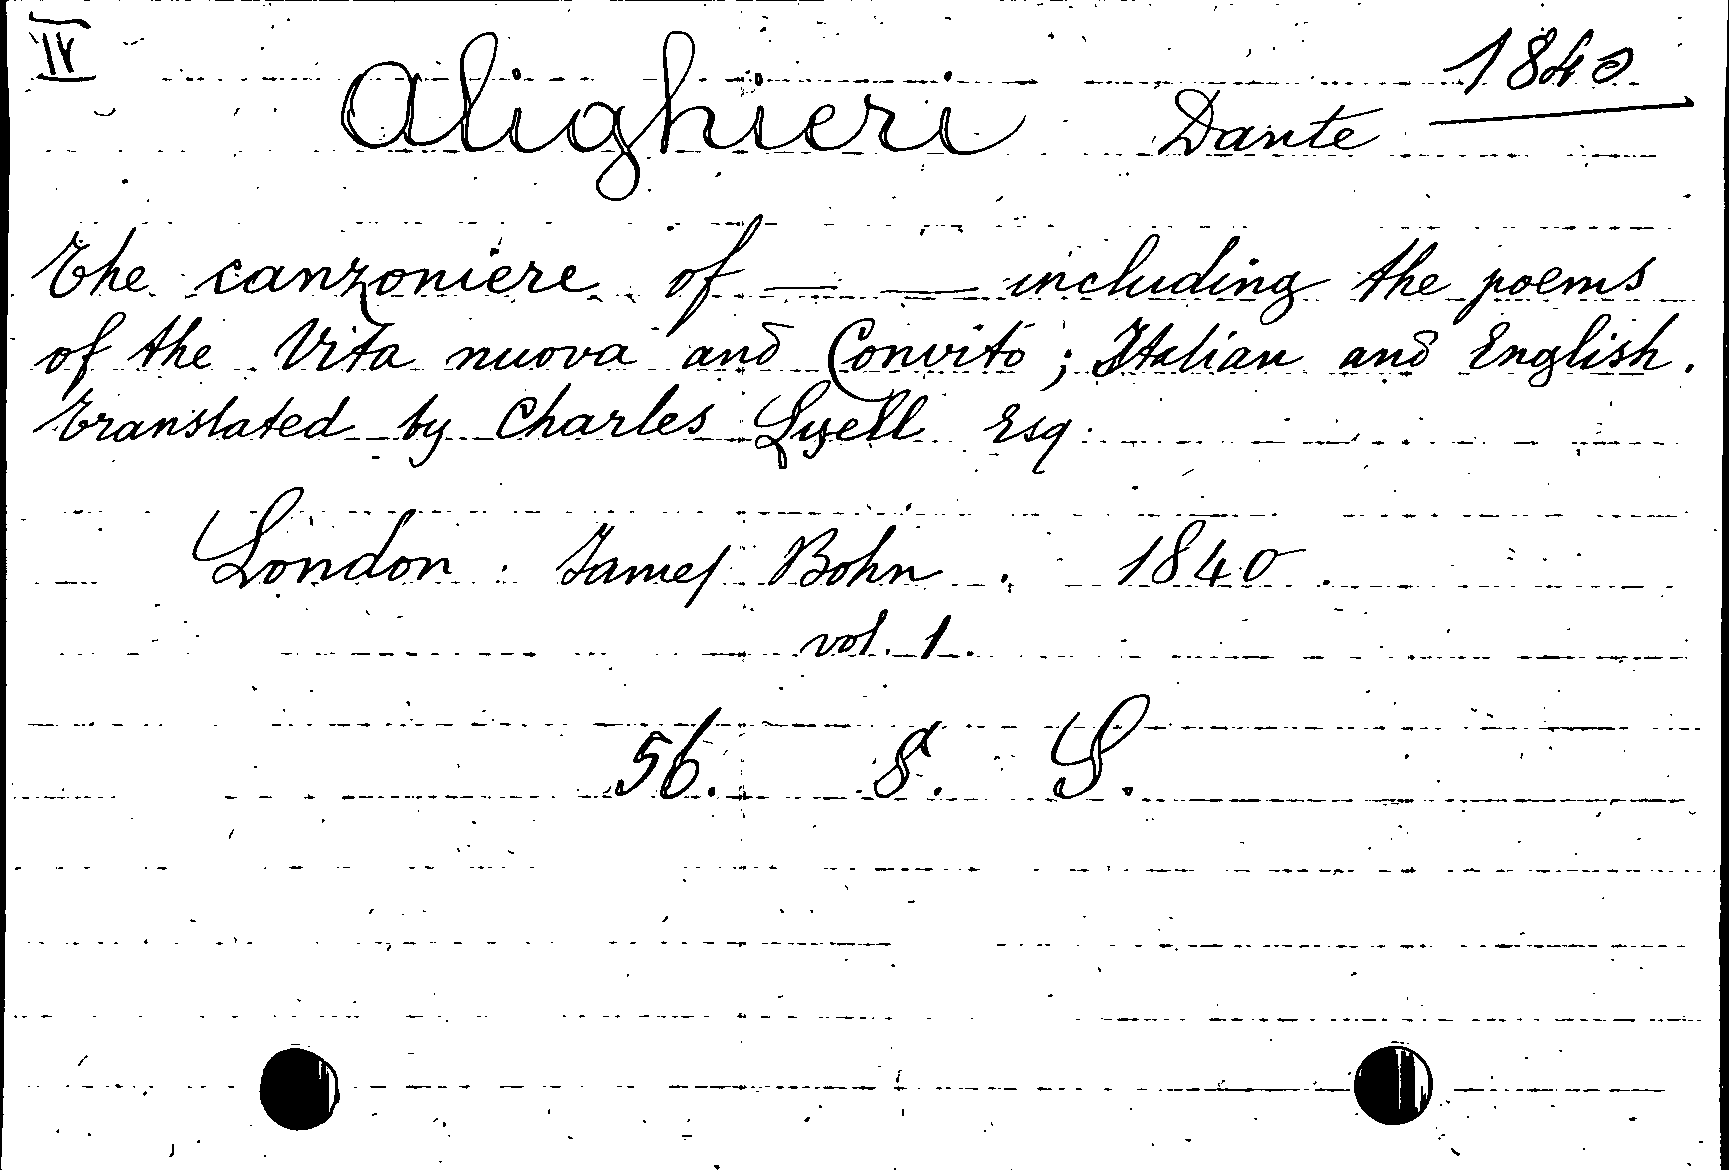 IV
1840
Alighieri Dante
The canzoniere of — — including the poems
of the Vita nuova and Convito ; Italian and English.
translated by Charles Lyell Esq.
London . James Bohn . 1840 .
vol. 1.
56. 8. S.